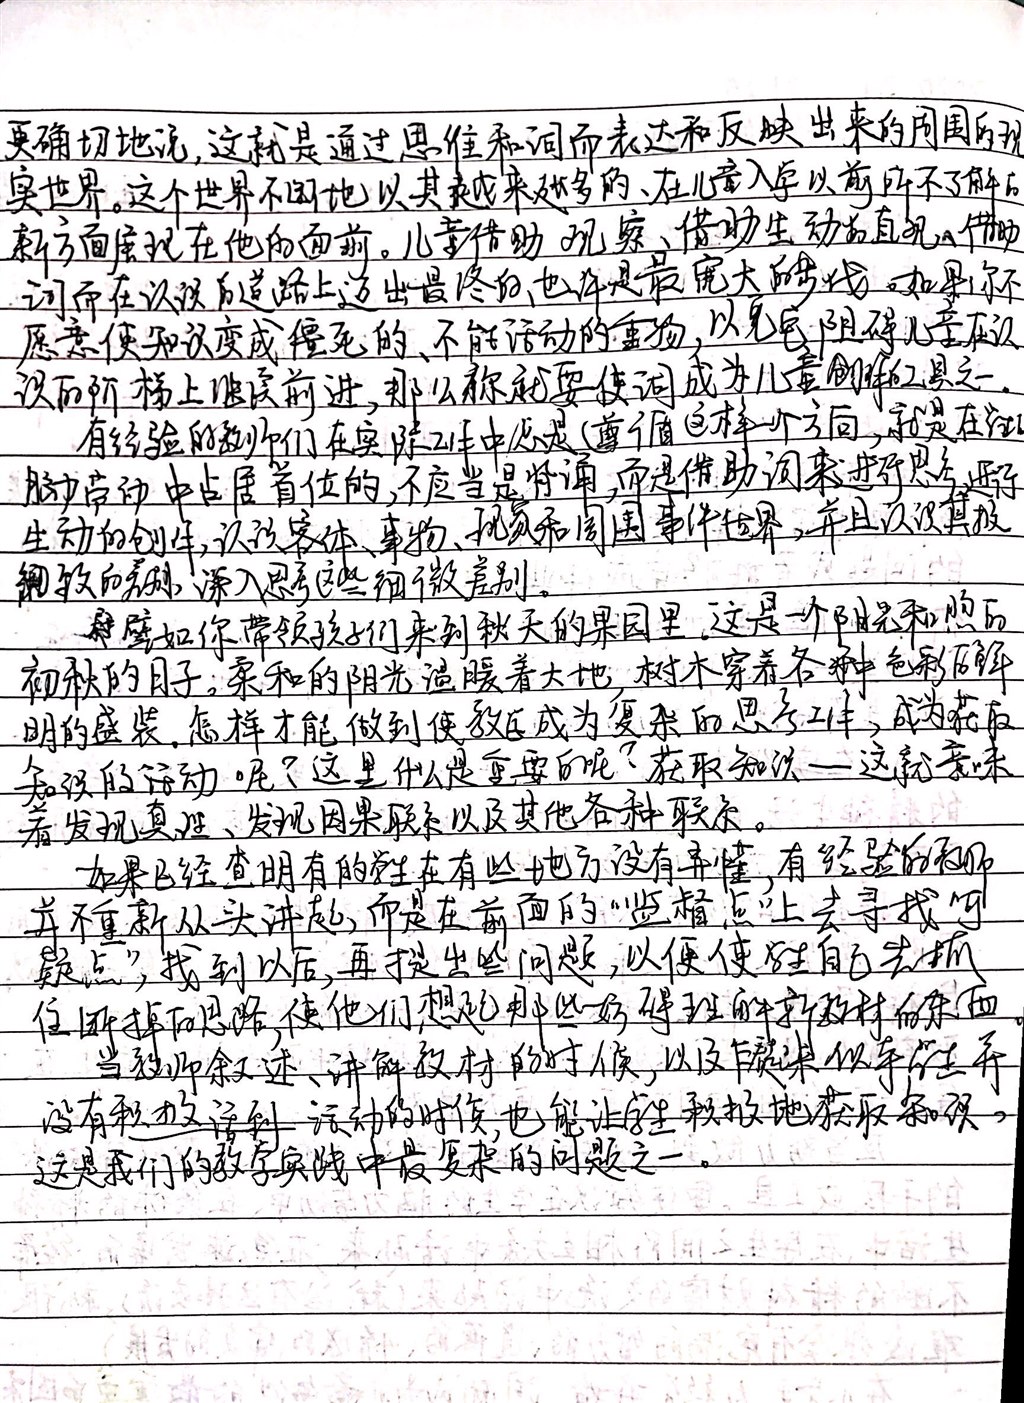 更确切地说，这就是通过思维和词而表达和反映出来的周围的现
实世界。这个世界不断地以其越来越多的、在儿童入学以前所不了解的
新方面展现在他的面前。儿童借助观察、借助生动的直观、借助
词而在认识的道路上迈出最终的、也许是最宽大的步伐。如果你不
愿意使知识变成僵死的、不能活动的重物，以免它阻碍儿童在认
识的阶梯上继续前进，那么你就要使词成为儿童创造的工具之一。
有经验的教师们在实际工作中总是遵循这样一个方向，就是在
脑力劳动中占居首位的，不应当是背诵，而是借助词来进行思考，进行
生动的创作，认识客体、事物、现象和周围事件世界，并且认识其极
细致的差别、深入思考这些细微差别。
譬如你带领孩子们来到秋天的果园里。这是一个阳光和煦的
初秋的日子。柔和的阳光温暖着大地，树木穿着各种色彩的鲜
明的盛装。怎样才能做到使教学成为复杂的思考工作，成为获取
知识的活动呢？这里什么是重要的呢？获取知识——这就意味
着发现真理、发现因果联系以及其他各种联系。
如果已经查明有的学生在有些地方没有弄懂，有经验的教师
并不重新从头讲起，而是在前面的“监督点”上去寻找“可
疑点”，找到以后，再提出些问题，以便使学生自己去抓
住断掉的思路，使他们想起那些妨碍理解新教材的东西。
当教师叙述、讲解教材的时候，以及乍看来似乎学生并
没有积极活动的时候，也能让学生积极地获取知识，
这是我们的教学实践中最复杂的问题之一。